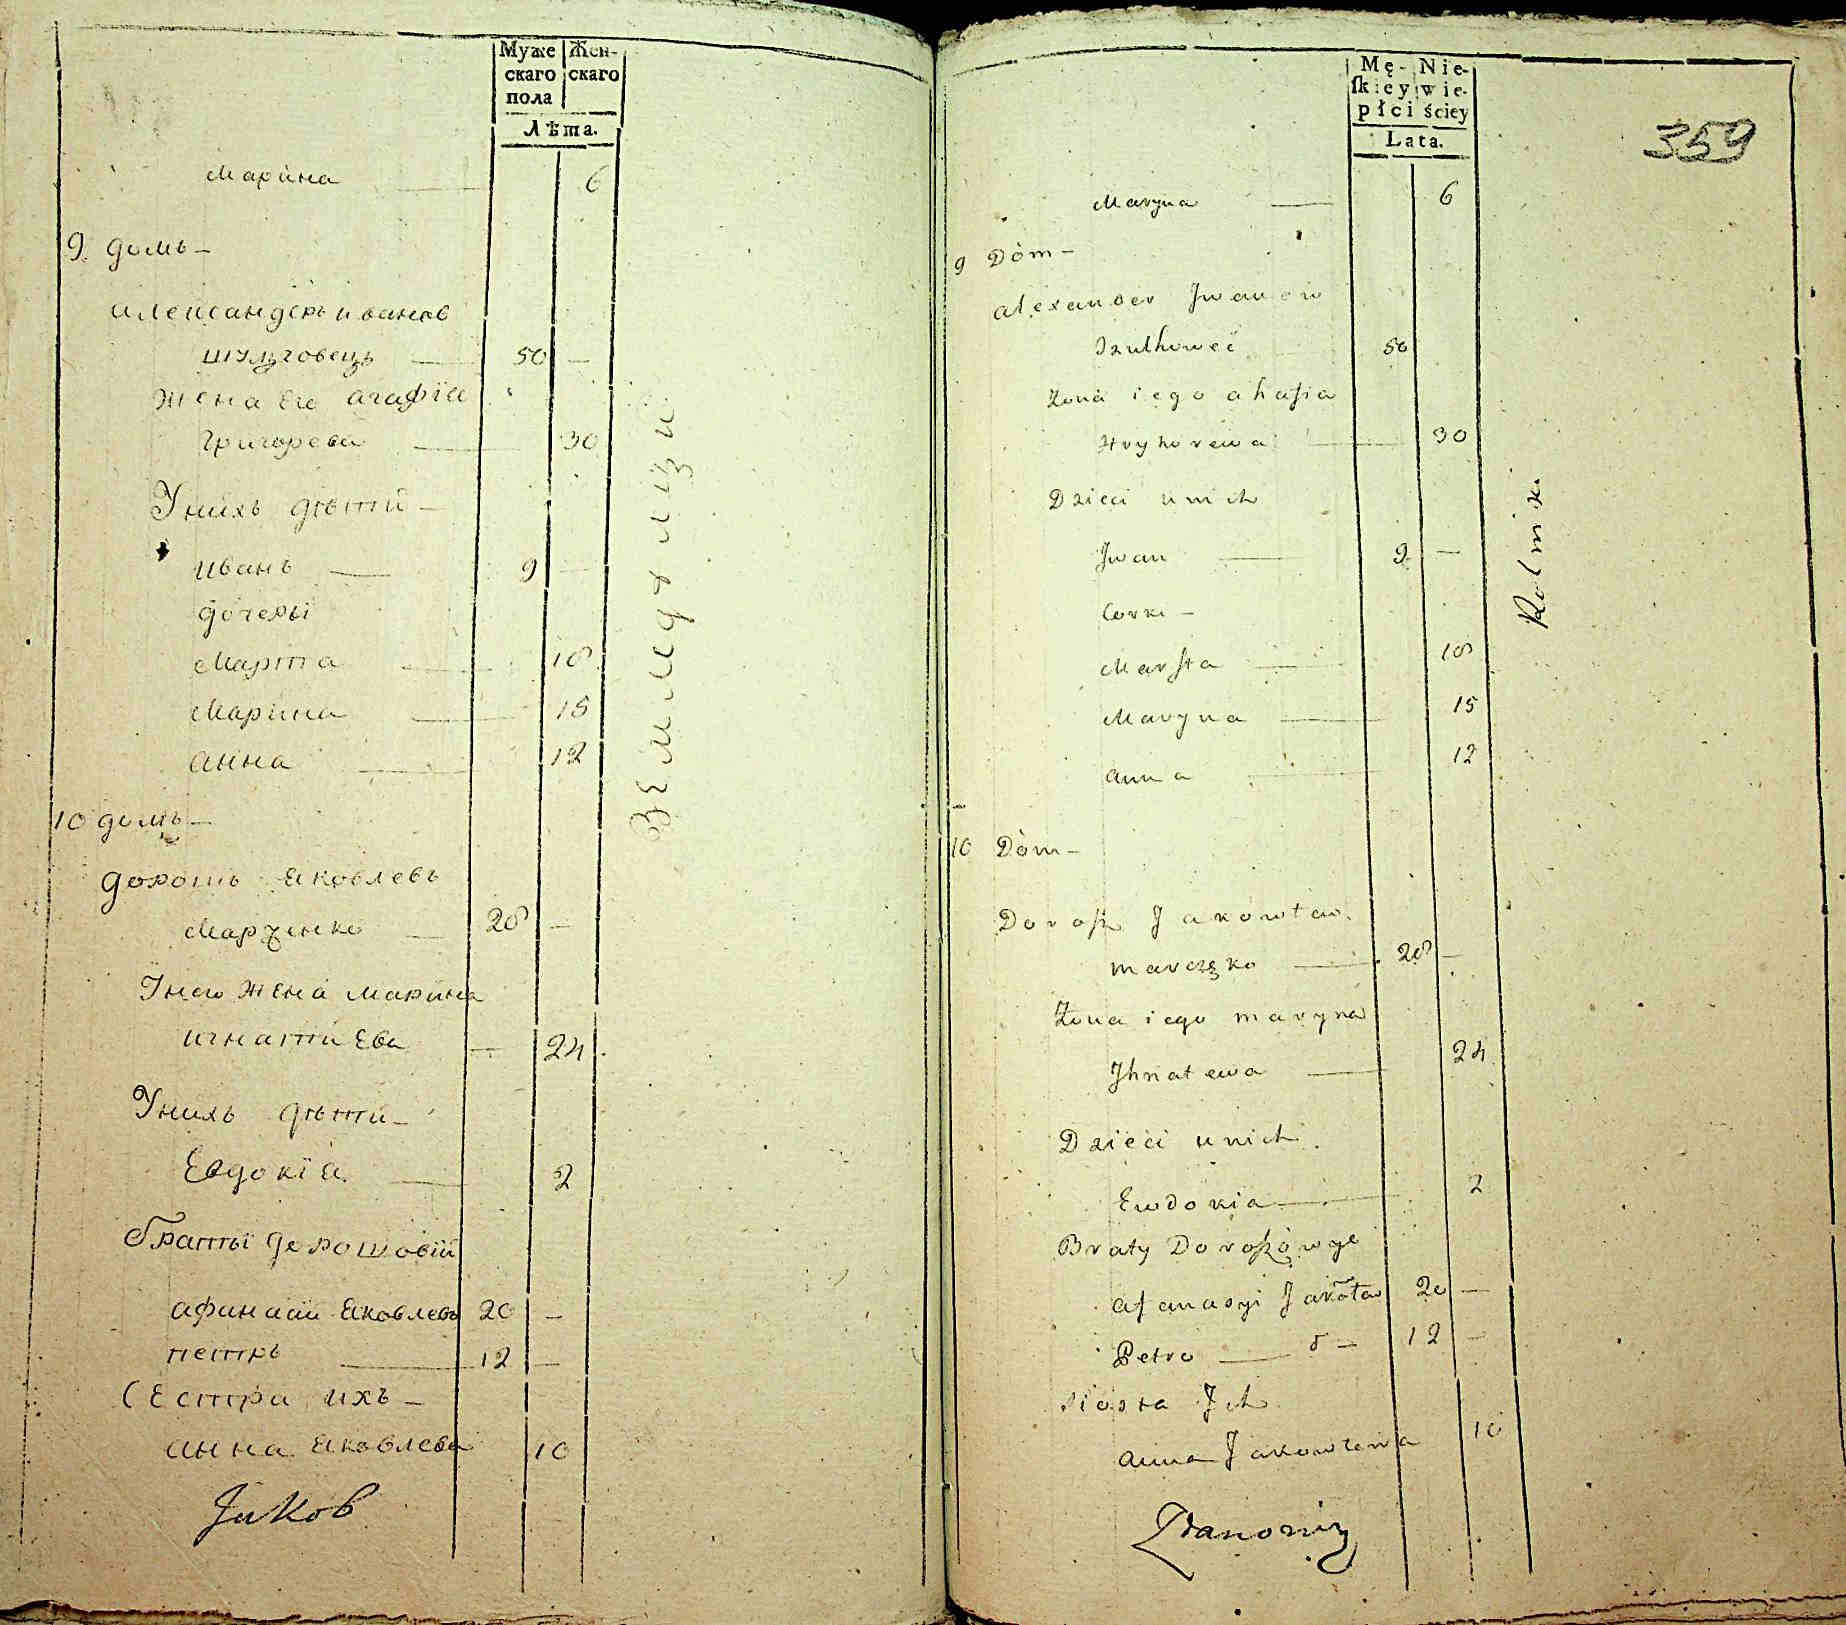 Муже Жен-
скаго скаго
пола
Лѣта.
Марина 6
9. домъ
Александеръ Иванов
Шульговецъ 50 —
Жена его Агафіе
Григорева 30
У нихъ дѣти —
Иванъ 9 —
дочеры
Марта 18
Марина 15
Анна 12
Земледѣлци
10 домъ —
Дорошъ Яковлевъ
Марченко 28 —
У него жена Марина
Игнатиева — 24
У нихъ дѣти —
Евдокіа 2
Браты Дорошовій
Афанаий Яковлевъ 20 —
Петръ 12 —
Сестра ихъ —
Анна Яковлева 10
Jakob
Mę- Nie-
skiey wie-
płci ściey
Lata.
359
Maryna 6
9 Dòm —
Alexander Jwanow
Szulhoweć 50
Żona iego Ahafia
Hryhorewa 30
Dzieci u nich
Jwan 9 —
Corki —
Marta 18
Maryna 15
Anna 12
Rolnik
10 Dòm —
Dorosz Jakowław
Marczęko 28 —
Żona iego Maryna
Jhnatewa 24
Dzieci u nich
Ewdokia 2
Braty Doroszowye
Afanasyi Jakoław 20 —
Petro 12 —
Siostra Jch
Anna Jakowlewa 10